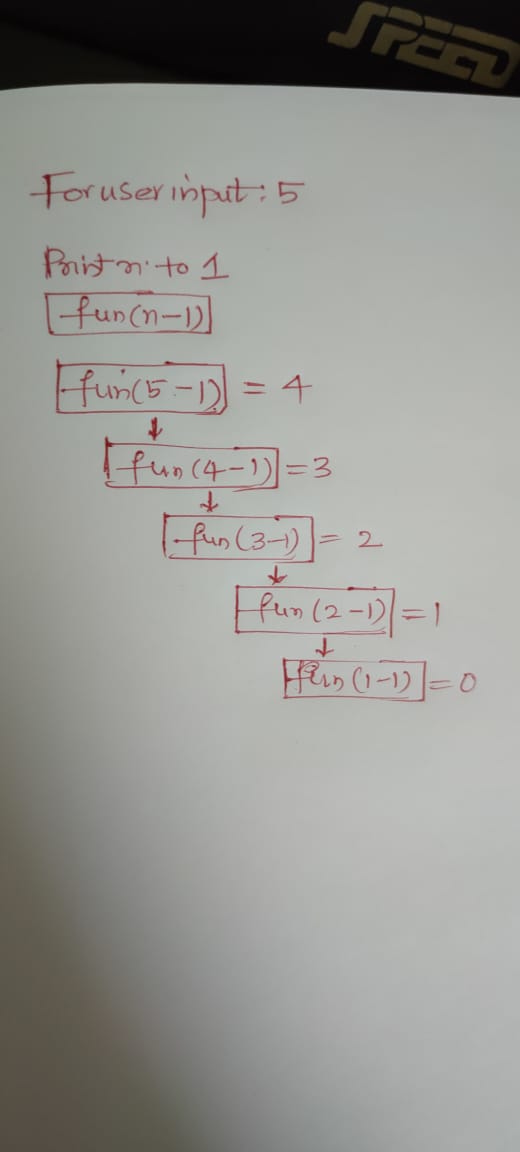 SPEED
For user input: 5
Print n to 1
fun(n-1)
fun(5-1) = 4
fun(4-1) = 3
fun(3-1) = 2
fun(2-1) = 1
fun(1-1) = 0